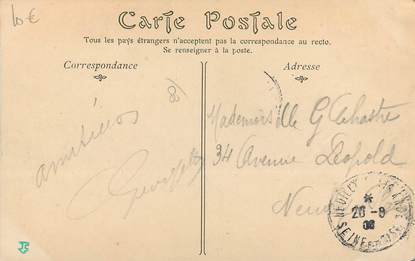 10€
Carte Postale
Tous les pays étrangers n'acceptent pas la correspondance au recto.
Se renseigner à la poste.
Correspondance
Adresse
amitiés
Georgette
Mademoiselle G
34 Avenue Léopold
NEUILLY
26-8
SEINE